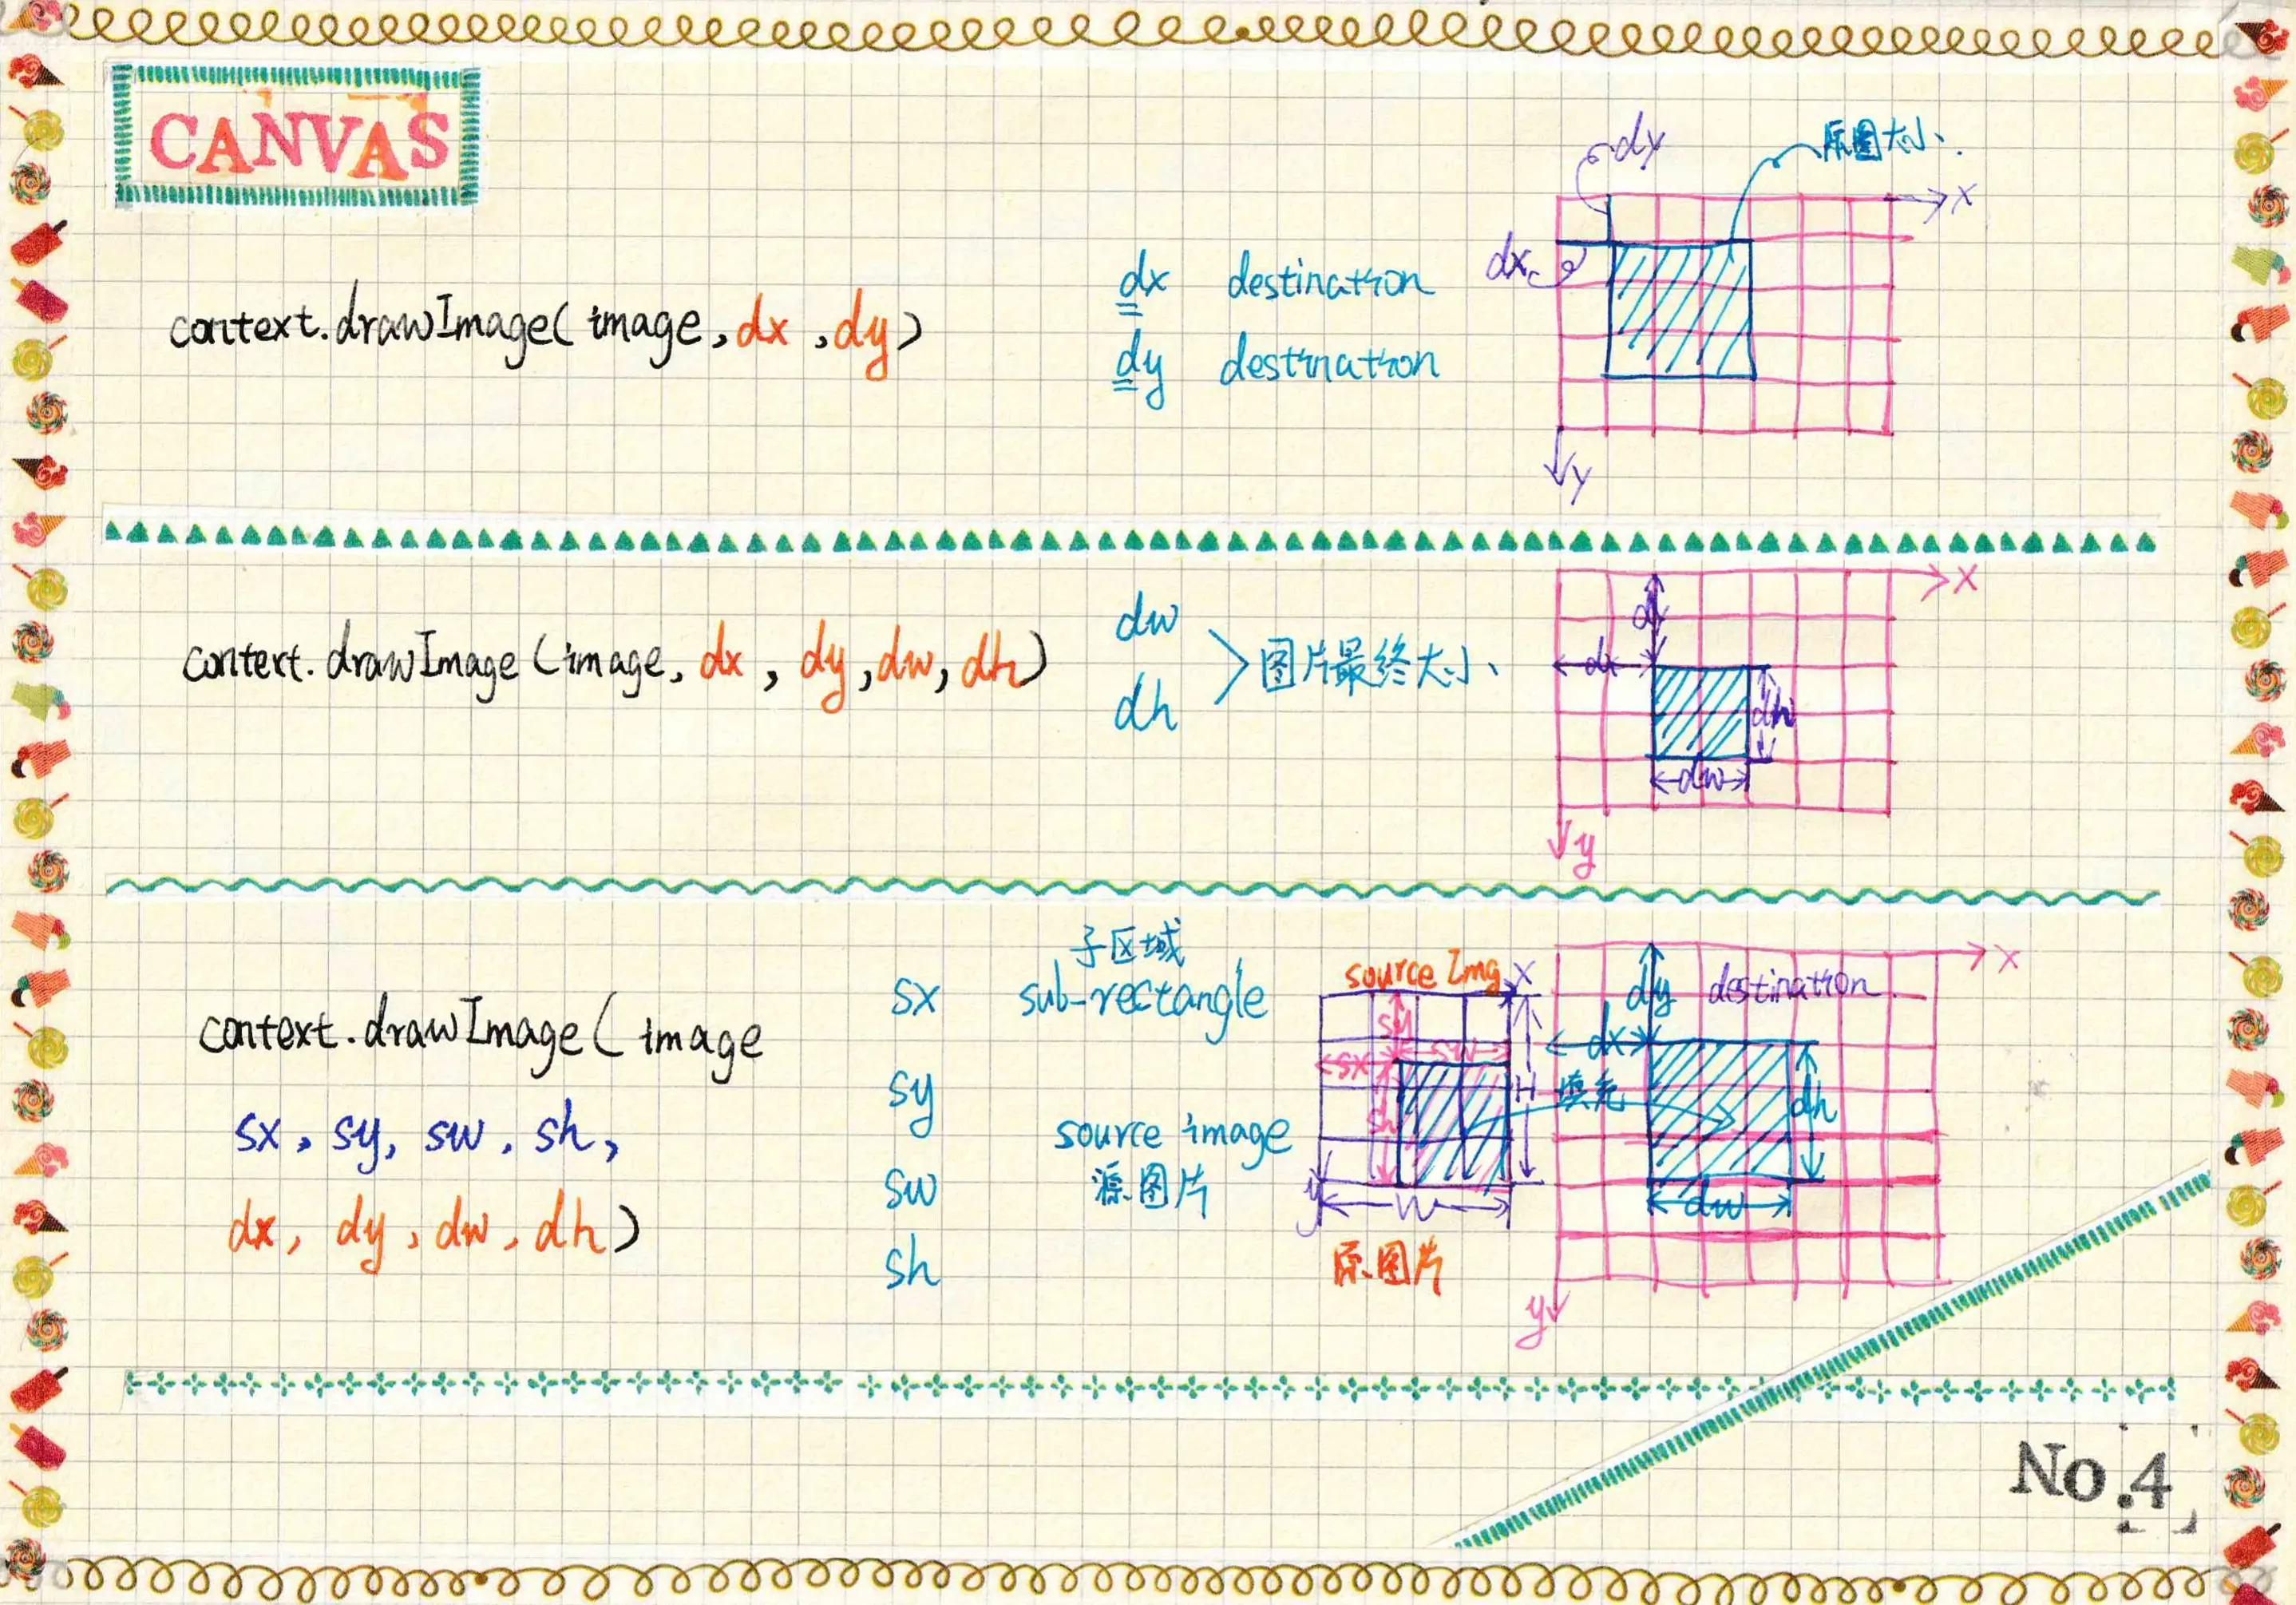 CANVAS
context.drawImage( image, dx , dy )
dx destination
dy destination
dy
原图大小
dx
x
y
context.drawImage (image, dx , dy, dw, dh)
dw
dh
图片最终大小
x
dy
dx
dh
dw
y
context.drawImage( image
sx, sy, sw, sh,
dx, dy, dw, dh)
子区域
sx sub-rectangle
sy
source image
sw 源图片
sh
source Img
x
sy
sx
sw
sh
H
W
y
原图片
填充
x
dy destination
dx
dh
dw
y
No.4